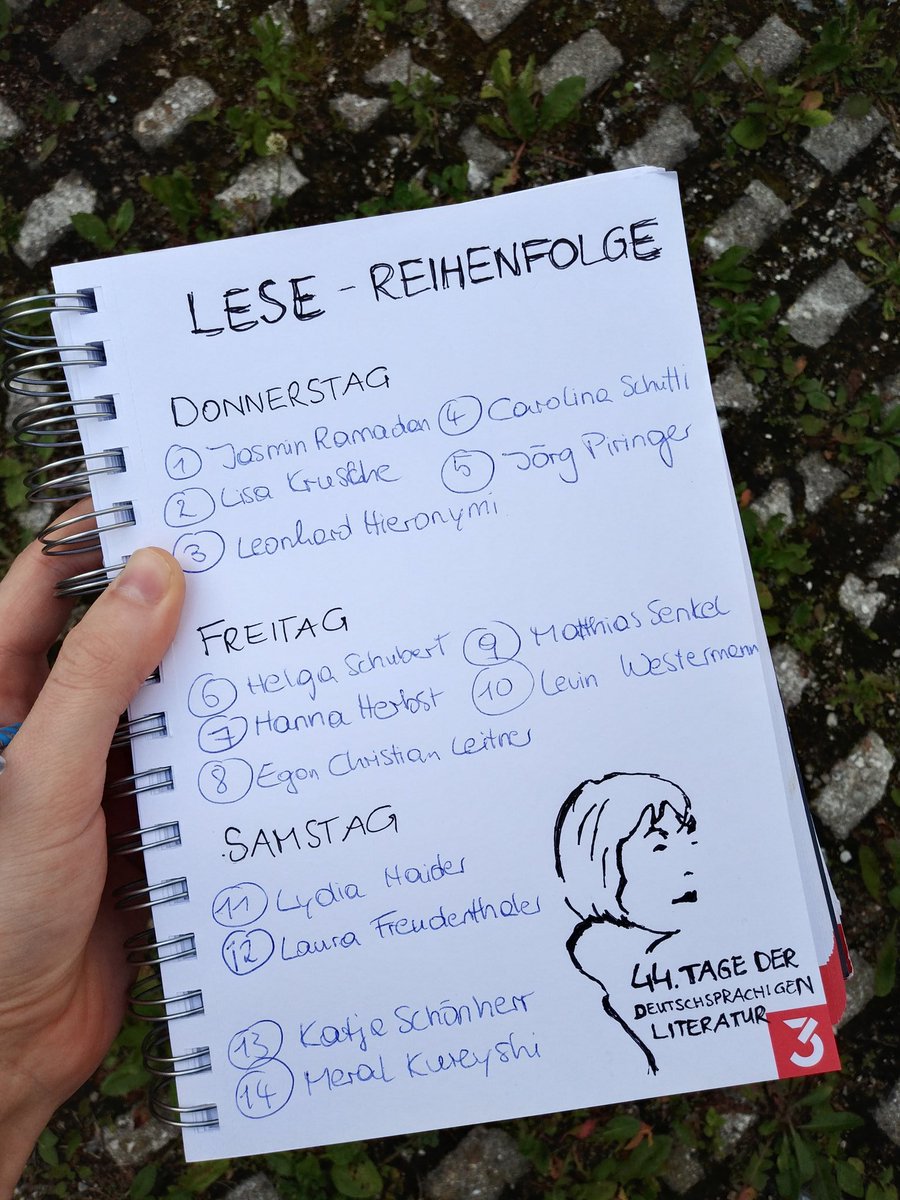 LESE - REIHENFOLGE
DONNERSTAG
1 Jasmin Ramadan
2 Lisa Krusche
3 Leonhard Hieronymi
4 Carolina Schutti
5 Jörg Piringer
FREITAG
6 Helga Schubert
7 Hanna Herbst
8 Egon Christian Leitner
9 Matthias Senkel
10 Levin Westermann
SAMSTAG
11 Lydia Haider
12 Laura Freudenthaler
13 Katja Schönherr
14 Meral Kureyshi
44. TAGE DER
DEUTSCHSPRACHIGEN
LITERATUR
3